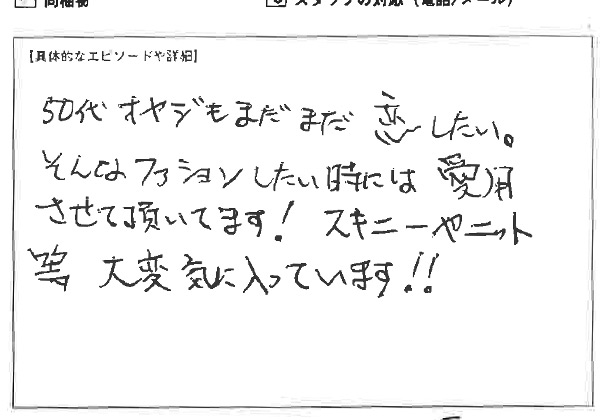 同梱物 スタッフの対応（電話/メール）
【具体的なエピソードや詳細】
50代オヤジもまだまだ 恋したい。
そんなファションしたい時には 愛用
させて頂いてます! スキニーやニット
等 大変気に入っています!!